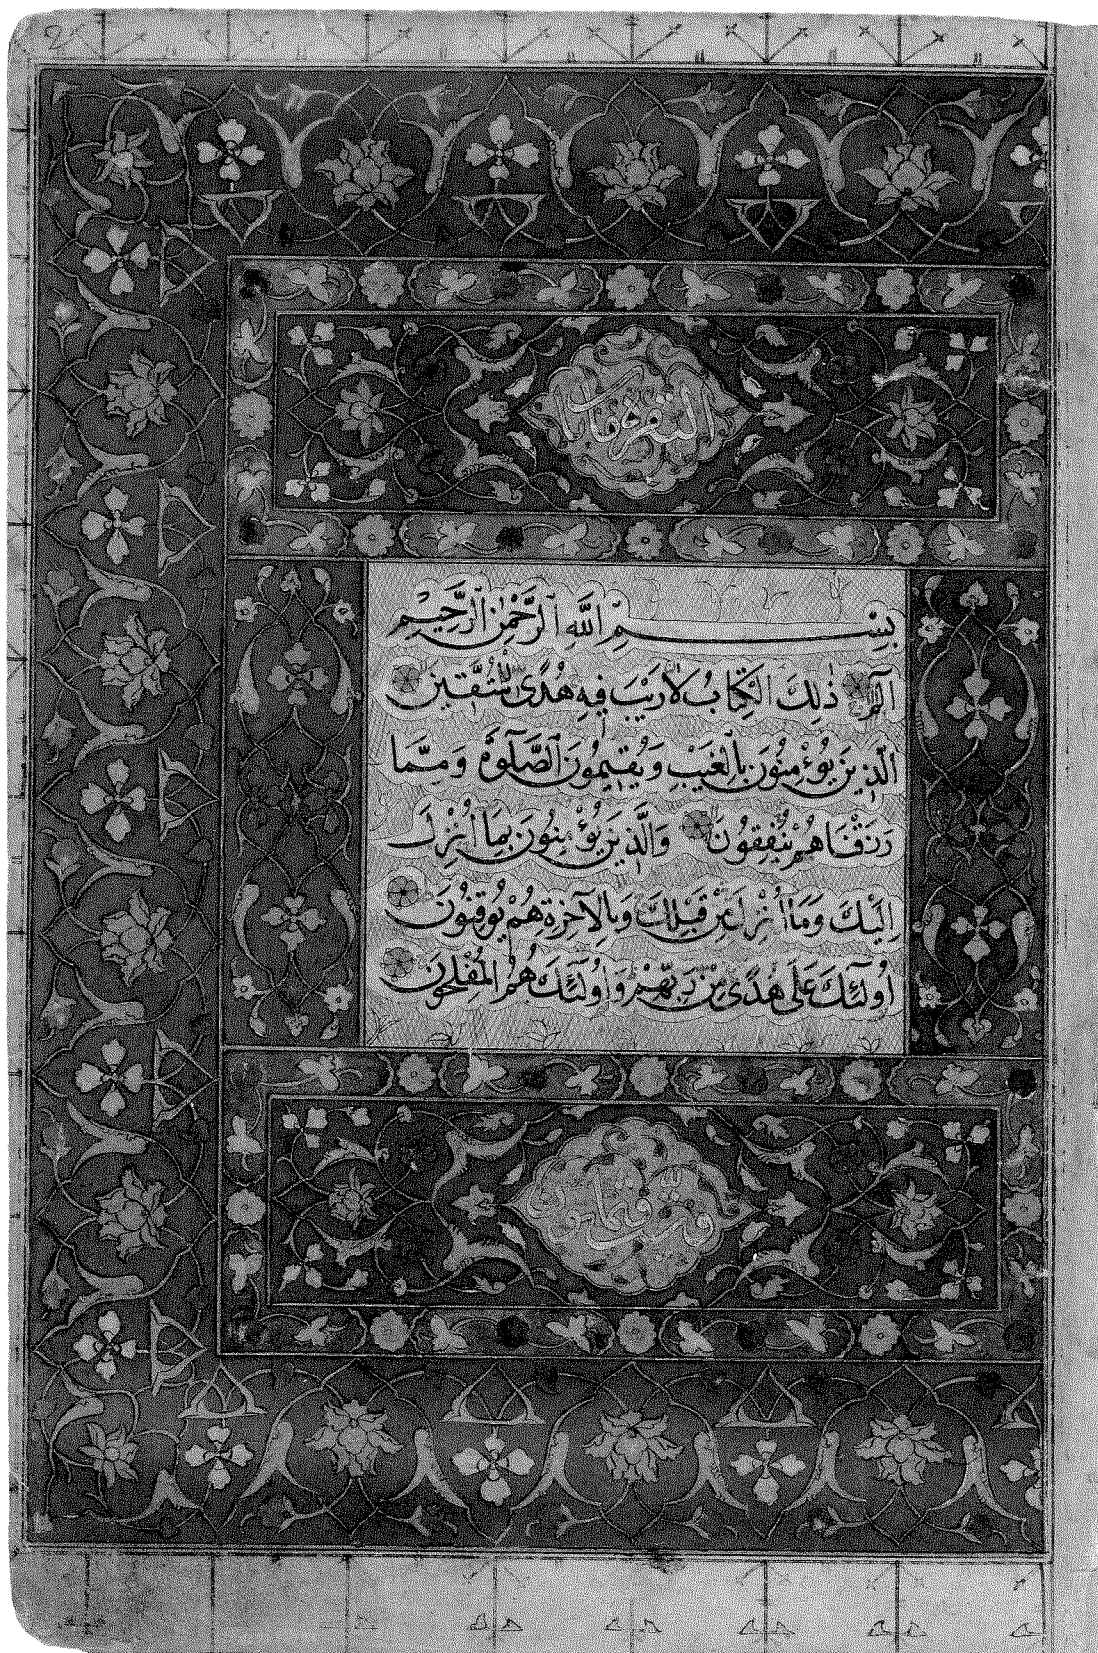 بِسْمِ اللَّهِ الرَّحْمٰنِ الرَّحِيمِ
الٓمٓ ذٰلِكَ الْكِتَابُ لَا رَيْبَ فِيهِ هُدًى لِلْمُتَّقِينَ
الَّذِينَ يُؤْمِنُونَ بِالْغَيْبِ وَيُقِيمُونَ الصَّلٰوةَ وَمِمَّا
رَزَقْنَاهُمْ يُنْفِقُونَ وَالَّذِينَ يُؤْمِنُونَ بِمَا أُنْزِلَ
إِلَيْكَ وَمَا أُنْزِلَ مِنْ قَبْلِكَ وَبِالْآخِرَةِ هُمْ يُوقِنُونَ
أُولٰٓئِكَ عَلَى هُدًى مِنْ رَبِّهِمْ وَأُولٰٓئِكَ هُمُ الْمُفْلِحُونَ